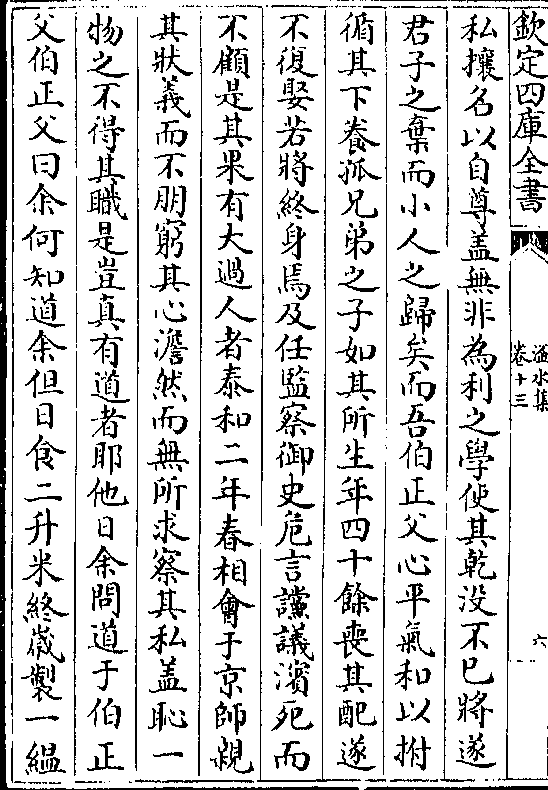 欽定四庫全書
滏水集
卷十三
六
私攘名以自尊盖無非為利之學使其乾没不已將遂
君子之棄而小人之歸矣而吾伯正父心平氣和以拊
循其下養孤兄弟之子如其所生年四十餘喪其配遂
不復娶若將終身焉及任監察御史危言讜議濱死而
不顧是其果有大過人者泰和二年春相會于京師親
其狀義而不朋窮其心澹然而無所求察其私盖恥一
物之不得其職是豈真有道者耶他日余問道于伯正
父伯正父曰余何知道余但日食二升米終歲製一緼